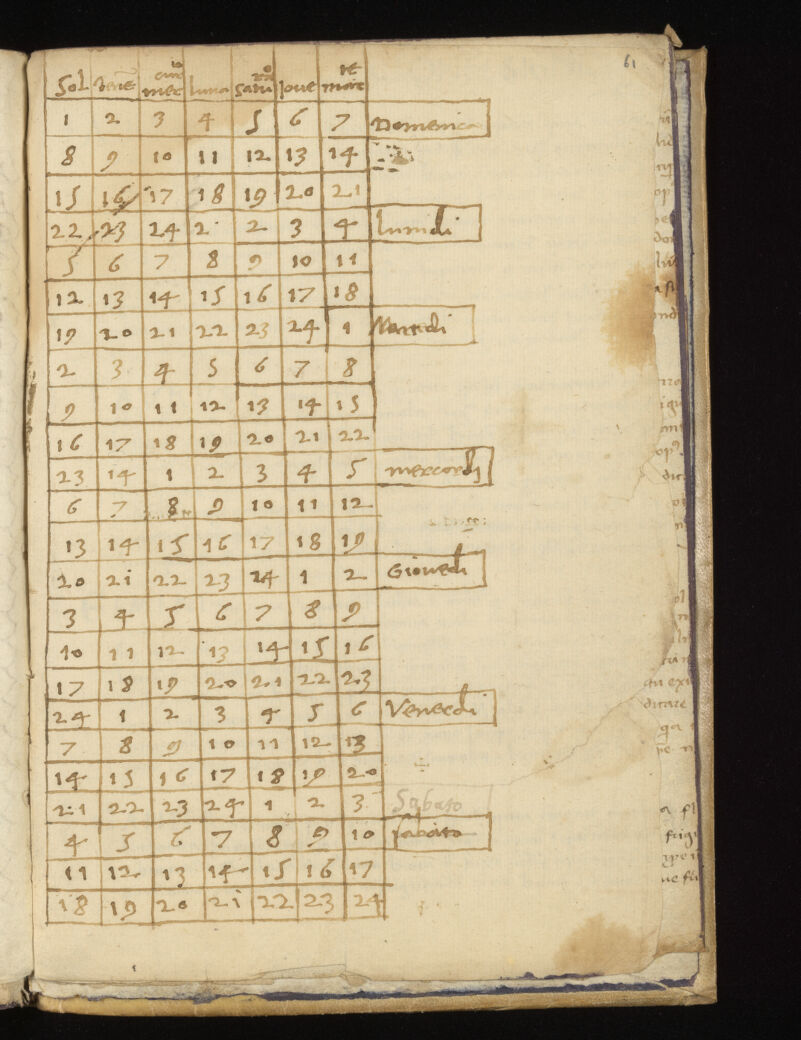 61
Sol Vene mercurio luna saturno Jove marte
1 2 3 4 5 6 7 Domenica
8 9 10 11 12 13 14
15 16 17 18 19 20 21
22 23 24 2 2 3 4 lunidi
5 6 7 8 9 10 11
12 13 14 15 16 17 18
19 20 21 22 23 24 1 Martidi
2 3 4 5 6 7 8
9 10 11 12 13 14 15
16 17 18 19 20 21 22
23 14 1 2 3 4 5 mercordi
6 7 8 9 10 11 12
13 14 15 16 17 18 19
20 21 22 23 24 1 2 Giovedi
3 4 5 6 7 8 9
10 11 12 13 14 15 16
17 18 19 20 21 22 23
24 1 2 3 4 5 6 Venerdi
7 8 9 10 11 12 13
14 15 16 17 18 19 20
21 22 23 24 1 2 3 Sabato
4 5 6 7 8 9 10 sabato
11 12 13 14 15 16 17
18 19 20 21 22 23 24